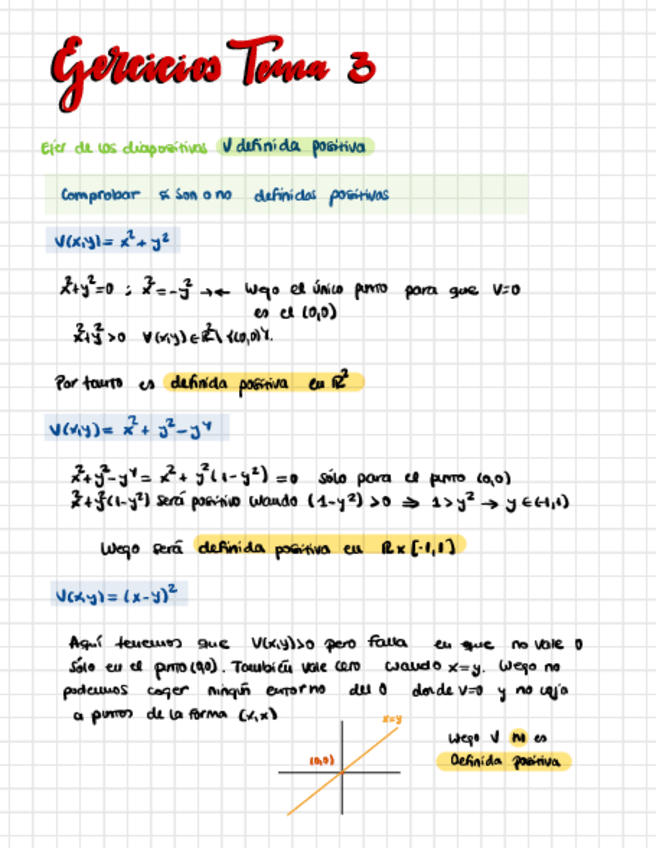 Ejercicios Tema 3
Ejer de las diapositivas V definida positiva
Comprobar si son o no definidas positivas
V(x,y) = x² + y²
x²+y²=0 ; x²=-y² →← luego el único punto para que V=0
es el (0,0)
x²+y²>0 V(x,y)∈ℝ²\{(0,0)}.
Por tanto es definida positiva en ℝ²
V(x,y) = x² + y² - y⁴
x²+y²-y⁴ = x² + y²(1-y²) = 0 sólo para el punto (0,0)
x²+y²(1-y²) será positivo cuando (1-y²) >0 ⇒ 1>y² → y∈(-1,1)
luego será definida positiva en ℝx[-1,1]
V(x,y) = (x-y)²
Aquí tenemos que V(x,y)>0 pero falla en que no vale 0
sólo en el punto (0,0). También vale cero cuando x=y. luego no
podemos coger ningún entorno del 0 donde V=0 y no coja
a puntos de la forma (x,x)
x=y
(0,0)
luego V no es
Definida positiva